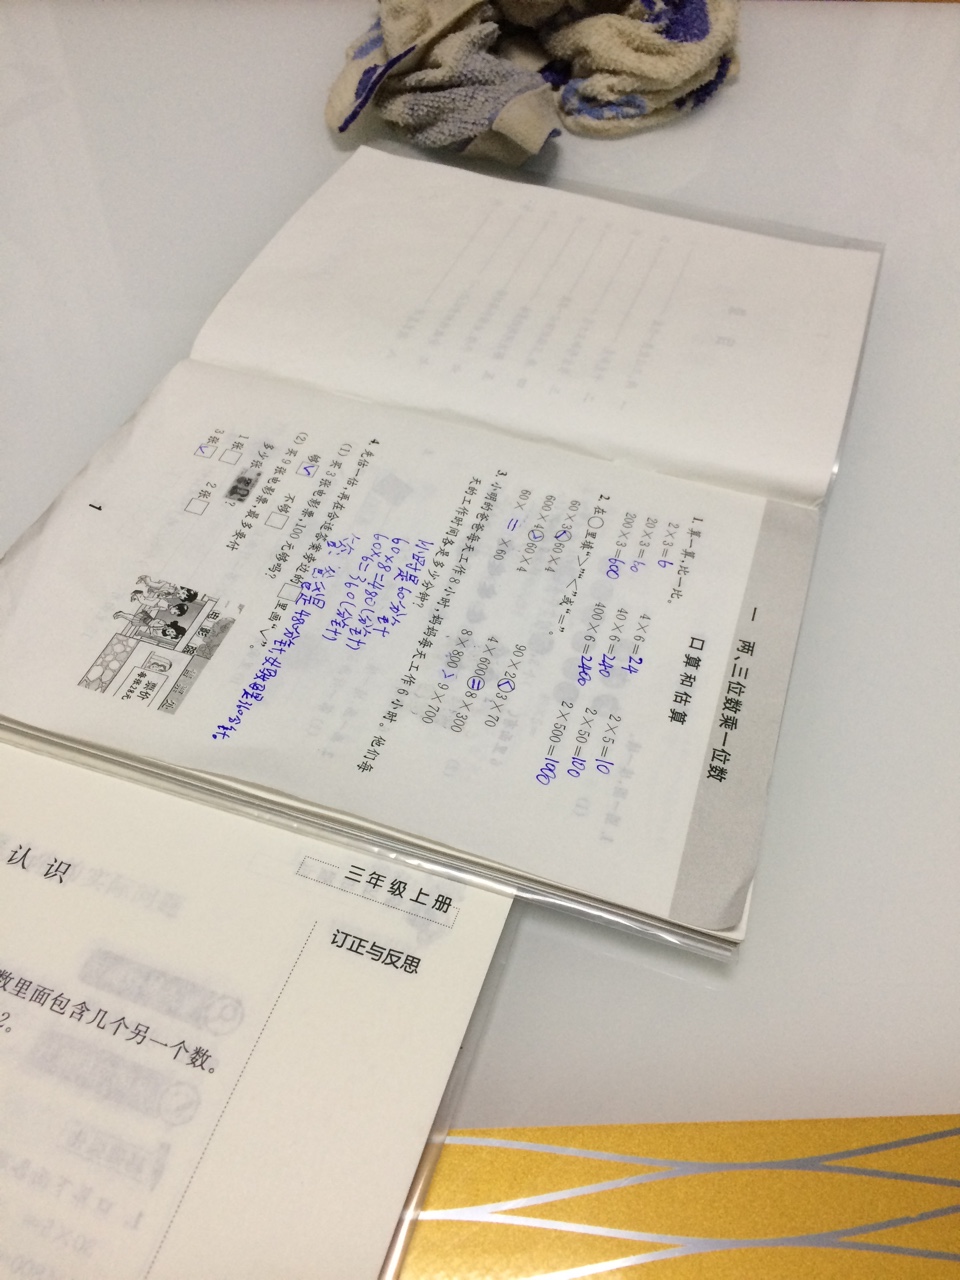 一 两、三位数乘一位数
口算和估算
1. 算一算,比一比。
2×3=6 4×6=24 2×5=10
20×3=60 40×6=240 2×50=100
200×3=600 400×6=2400 2×500=1000
2. 在○里填“>”“<”或“=”。
60×3<60×4 90×2<3×70
600×4>60×4 4×600=8×300
60× = ×60 8×800>9×700
3. 小明的爸爸每天工作8小时,妈妈每天工作6小时。他们每
天的工作时间各是多少分钟?
1小时是60分钟
60×8=480(分钟)
60×6=360(分钟)
4. 先估一估,再在合适答案旁边的□里画“√”。
(1) 买3张电影票,100元够吗?
够√ 不够□
(2) 买9张电影票,最多要付
多少张
1张□ 2张□
3张√
电影院
票价
每张28元
1
三年级上册
订正与反思
认识
数里面包含几个另一个数。
2。